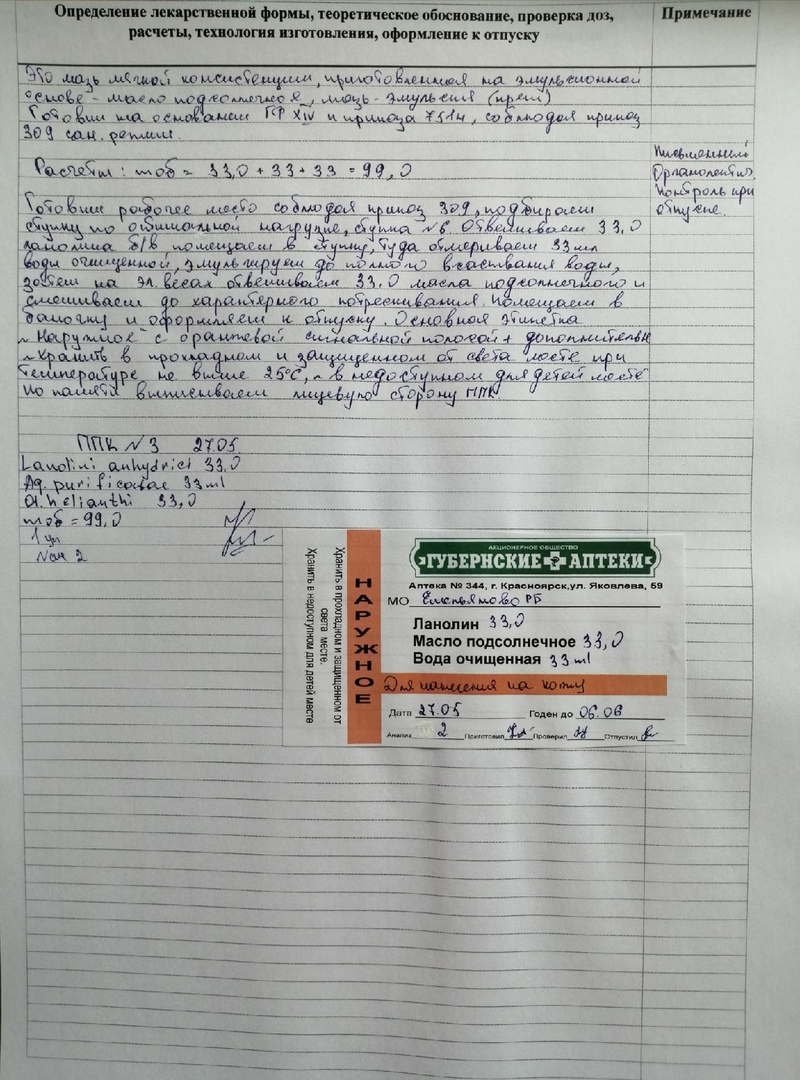 Определение лекарственной формы, теоретическое обоснование, проверка доз,
расчеты, технология изготовления, оформление к отпуску
Примечание
Это мазь мягкой консистенции, приготовленная на эмульсионной
основе - масло подсолнечное, мазь - эмульсия (крем)
Готовим на основании ГФ XIV и приказа 751н, соблюдая приказ
309 сан. режим.
Расчеты: mоб = 33,0 + 33 + 33 = 99,0
Письменный
Органолептич.
Контроль при
отпуске.
Готовим рабочее место соблюдая приказ 309, подбираем
ступку по оптимальной нагрузке, ступка №6. Отвешиваем 33,0
ланолина б/в помещаем в ступку, туда отмериваем 33мл
воды очищенной, эмульгируем до полного всасывания воды,
затем на эл. весах отвешиваем 33,0 масла подсолнечного и
смешиваем до характерного потрескивания. Помещаем в
баночку и оформляем к отпуску. Основная этикетка
„Наружное" с оранжевой сигнальной полосой + дополнительн
„Хранить в прохладном и защищенном от света месте при
температуре не выше 25°С, „ в недоступном для детей месте
По памяти выписываем лицевую сторону ППК.
ППК №3 27.05.
Lanolini anhydrici 33,0
Aq. purificatae 33 ml
Ol. helianthi 33,0
mоб = 99,0
Хранить в прохладном и защищенном от
света месте.
Хранить в недоступном для детей месте
НАРУЖНОЕ
АКЦИОНЕРНОЕ ОБЩЕСТВО
ГУБЕРНСКИЕ АПТЕКИ
Аптека № 344, г. Красноярск, ул. Яковлева, 59
МО Емельяново РБ
Ланолин 33,0
Масло подсолнечное 33,0
Вода очищенная 33 ml
Для нанесения на кожу
Дата 27.05 Годен до 06.06
Анализ 2 Приготовил Проверил Отпустил